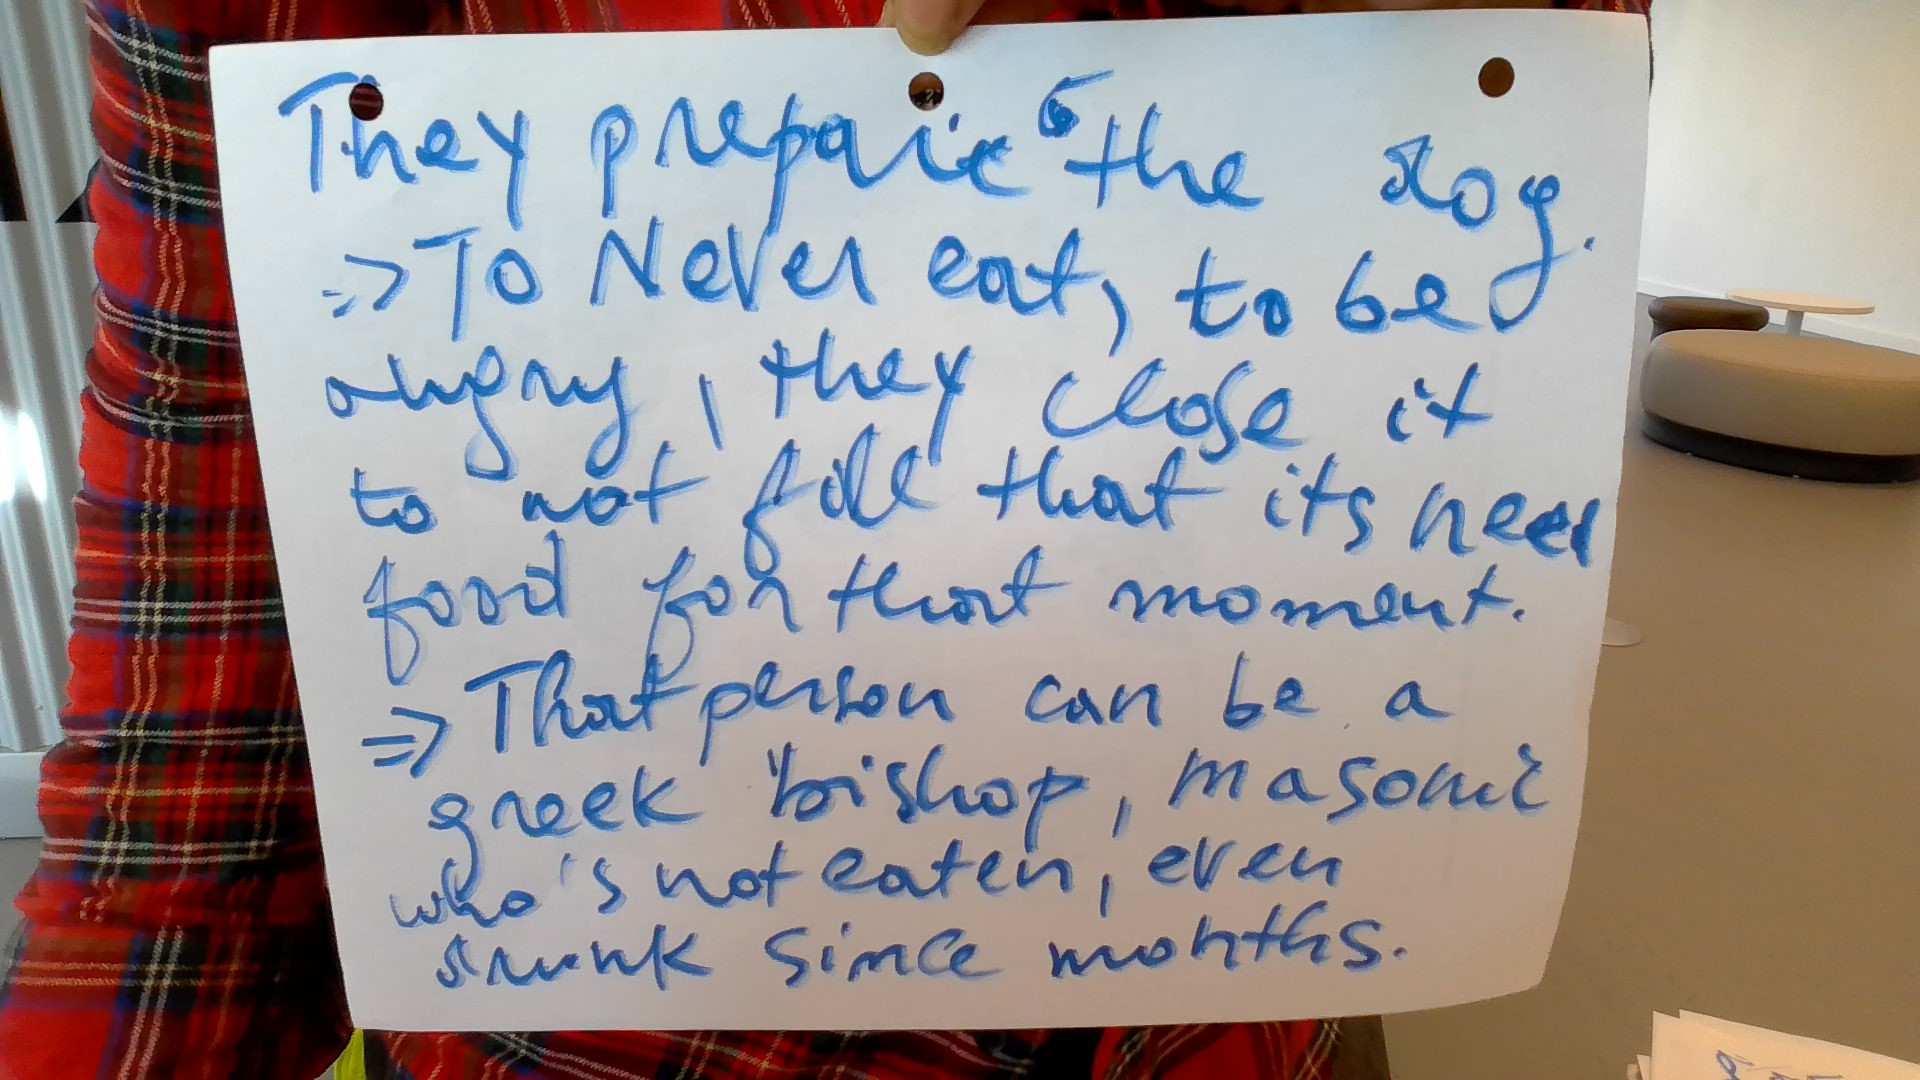 They prepaire the dog.
=> To Never eat, to be
angry, they close it
to not fill that its need
food for that moment.
=> That person can be a
greek bishop, masonic
who's not eaten, even
drunk since months.